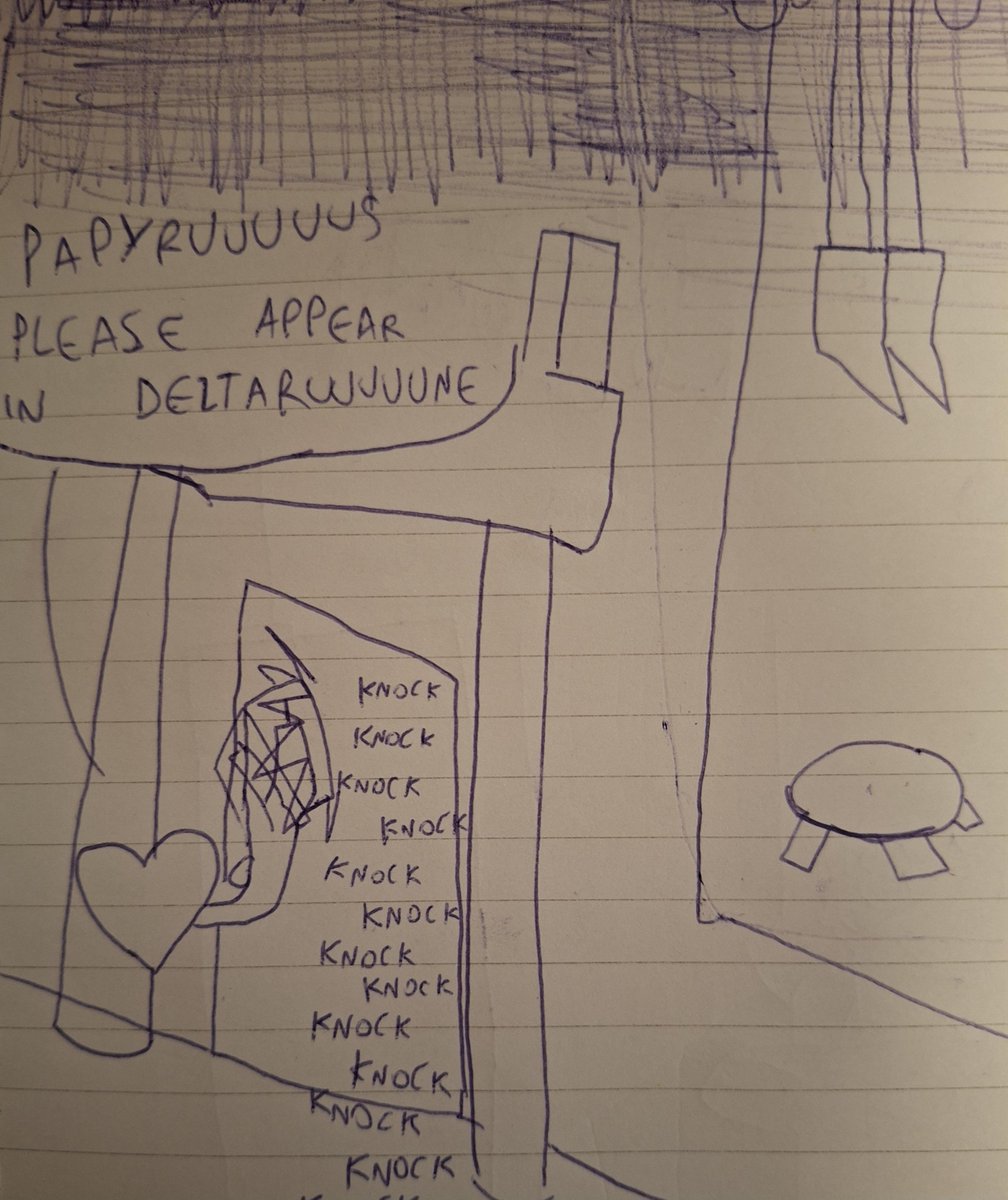 PAPYRUUUUUS
PLEASE APPEAR
IN DELTARUUUUUNE
KNOCK
KNOCK
KNOCK
KNOCK
KNOCK
KNOCK
KNOCK
KNOCK
KNOCK
KNOCK
KNOCK
KNOCK